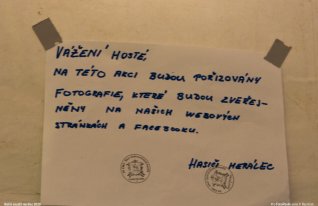 VÁŽENÍ HOSTÉ,
NA TÉTO AKCI BUDOU POŘIZOVÁNY
FOTOGRAFIE, KTERÉ BUDOU ZVEŘEJ-
NĚNY NA NAŠICH WEBOVÝCH
STRÁNKÁCH A FACEBOOKU.
HASIČI HERÁLEC